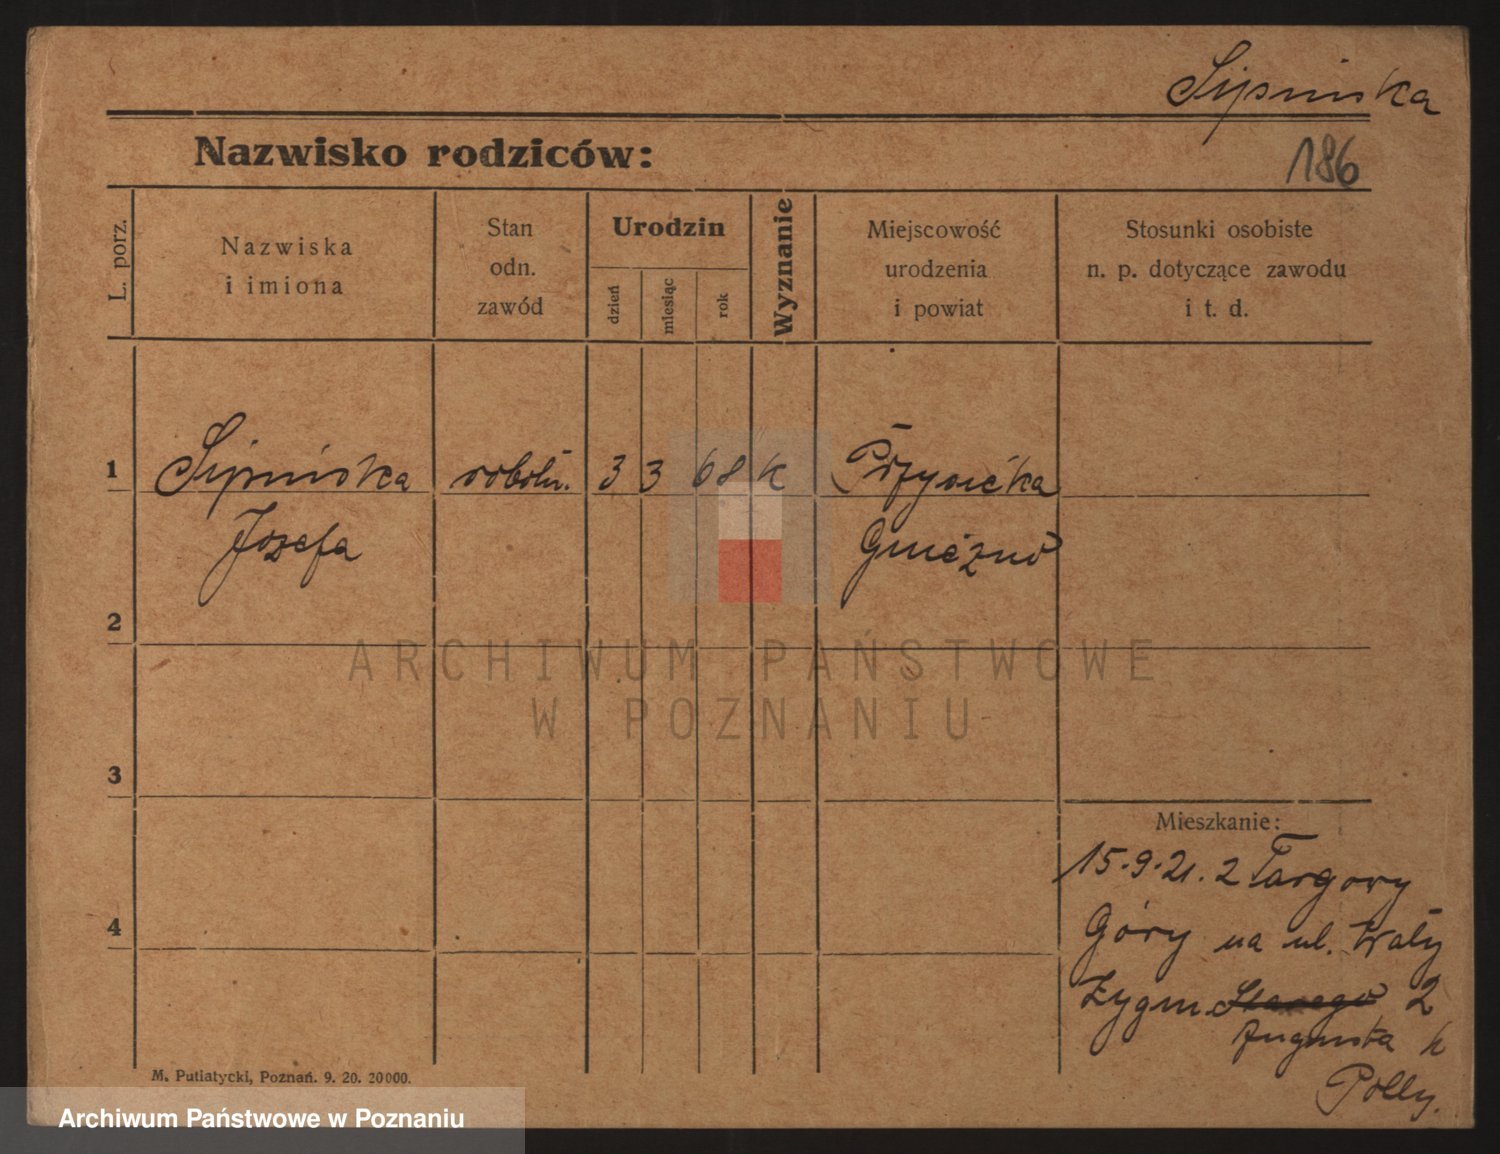 Sipińska
186
Nazwisko rodziców:
L. porz.
Nazwiska
i imiona
Stan
odn.
zawód
Urodzin
dzień
miesiąc
rok
Wyznanie
Miejscowość
urodzenia
i powiat
Stosunki osobiste
n. p. dotyczące zawodu
i t. d.
1
Sipińska robotn. 3 3 68 k
Józefa
Gniezno
2
3
4
Mieszkanie:
15.9.21. z Targowy
Góry na ul. Wały
Zygm. Starego 2
Augusta
M. Putiatycki, Poznań. 9. 20. 20000.
ARCHIWUM PAŃSTWOWE
W POZNANIU
Archiwum Państwowe w Poznaniu